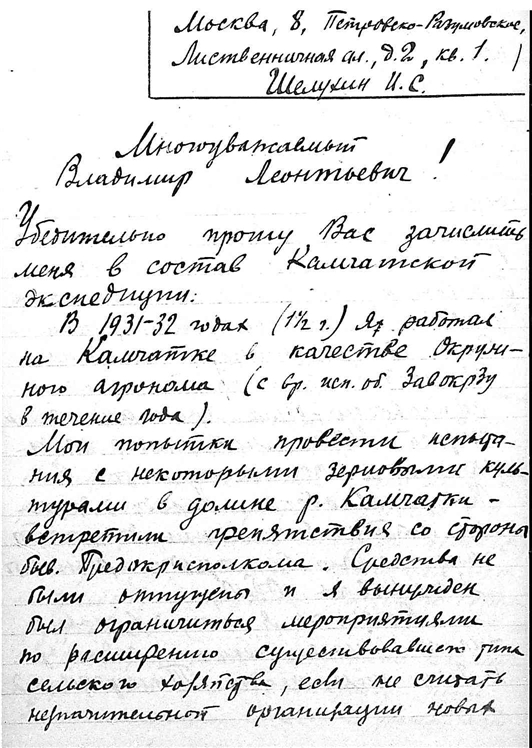 Москва, 8, Петровско-Разумовское,
Лиственничная ал., д.2, кв. 1.
Шелухин И.С.
Многоуважаемый
Владимир Леонтьевич!
Убедительно прошу Вас зачислить
меня в состав Камчатской
экспедиции:
В 1931-32 годах (1½ г.) Я работал
на Камчатке в качестве Окружн-
ного агронома (с вр. исп. об. Завокрзу
в течение года).
Мои попытки провести испыта-
ния с некоторыми зерновыми куль-
турами в долине р. Камчатки -
встретили препятствия со стороны
быв. Предокрисполкома. Средства не
были отпущены и я вынужден
был ограничиться мероприятиями
по расширению существовавшего типа
сельского хозяйства, если не считать
незначительной организации новых